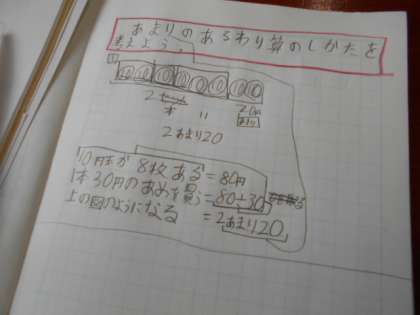 あまりのあるわり算のしかたを
考えよう。
①
10 10 10 10 10 10 10 10
2 20円
本 〃 あまり
2あまり20
10円玉が8枚ある=80円
1本30円のあめを買う=80÷30
上の図のようになる =2あまり20